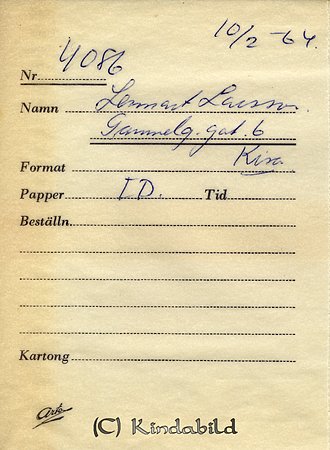 10/2 -64.
Nr. 4086
Namn Lennart Larsson.
Gammelg.gat. 6
Format Kisa
Papper I.D. Tid
Beställn.
Kartong
Ark
(C) Kindabild